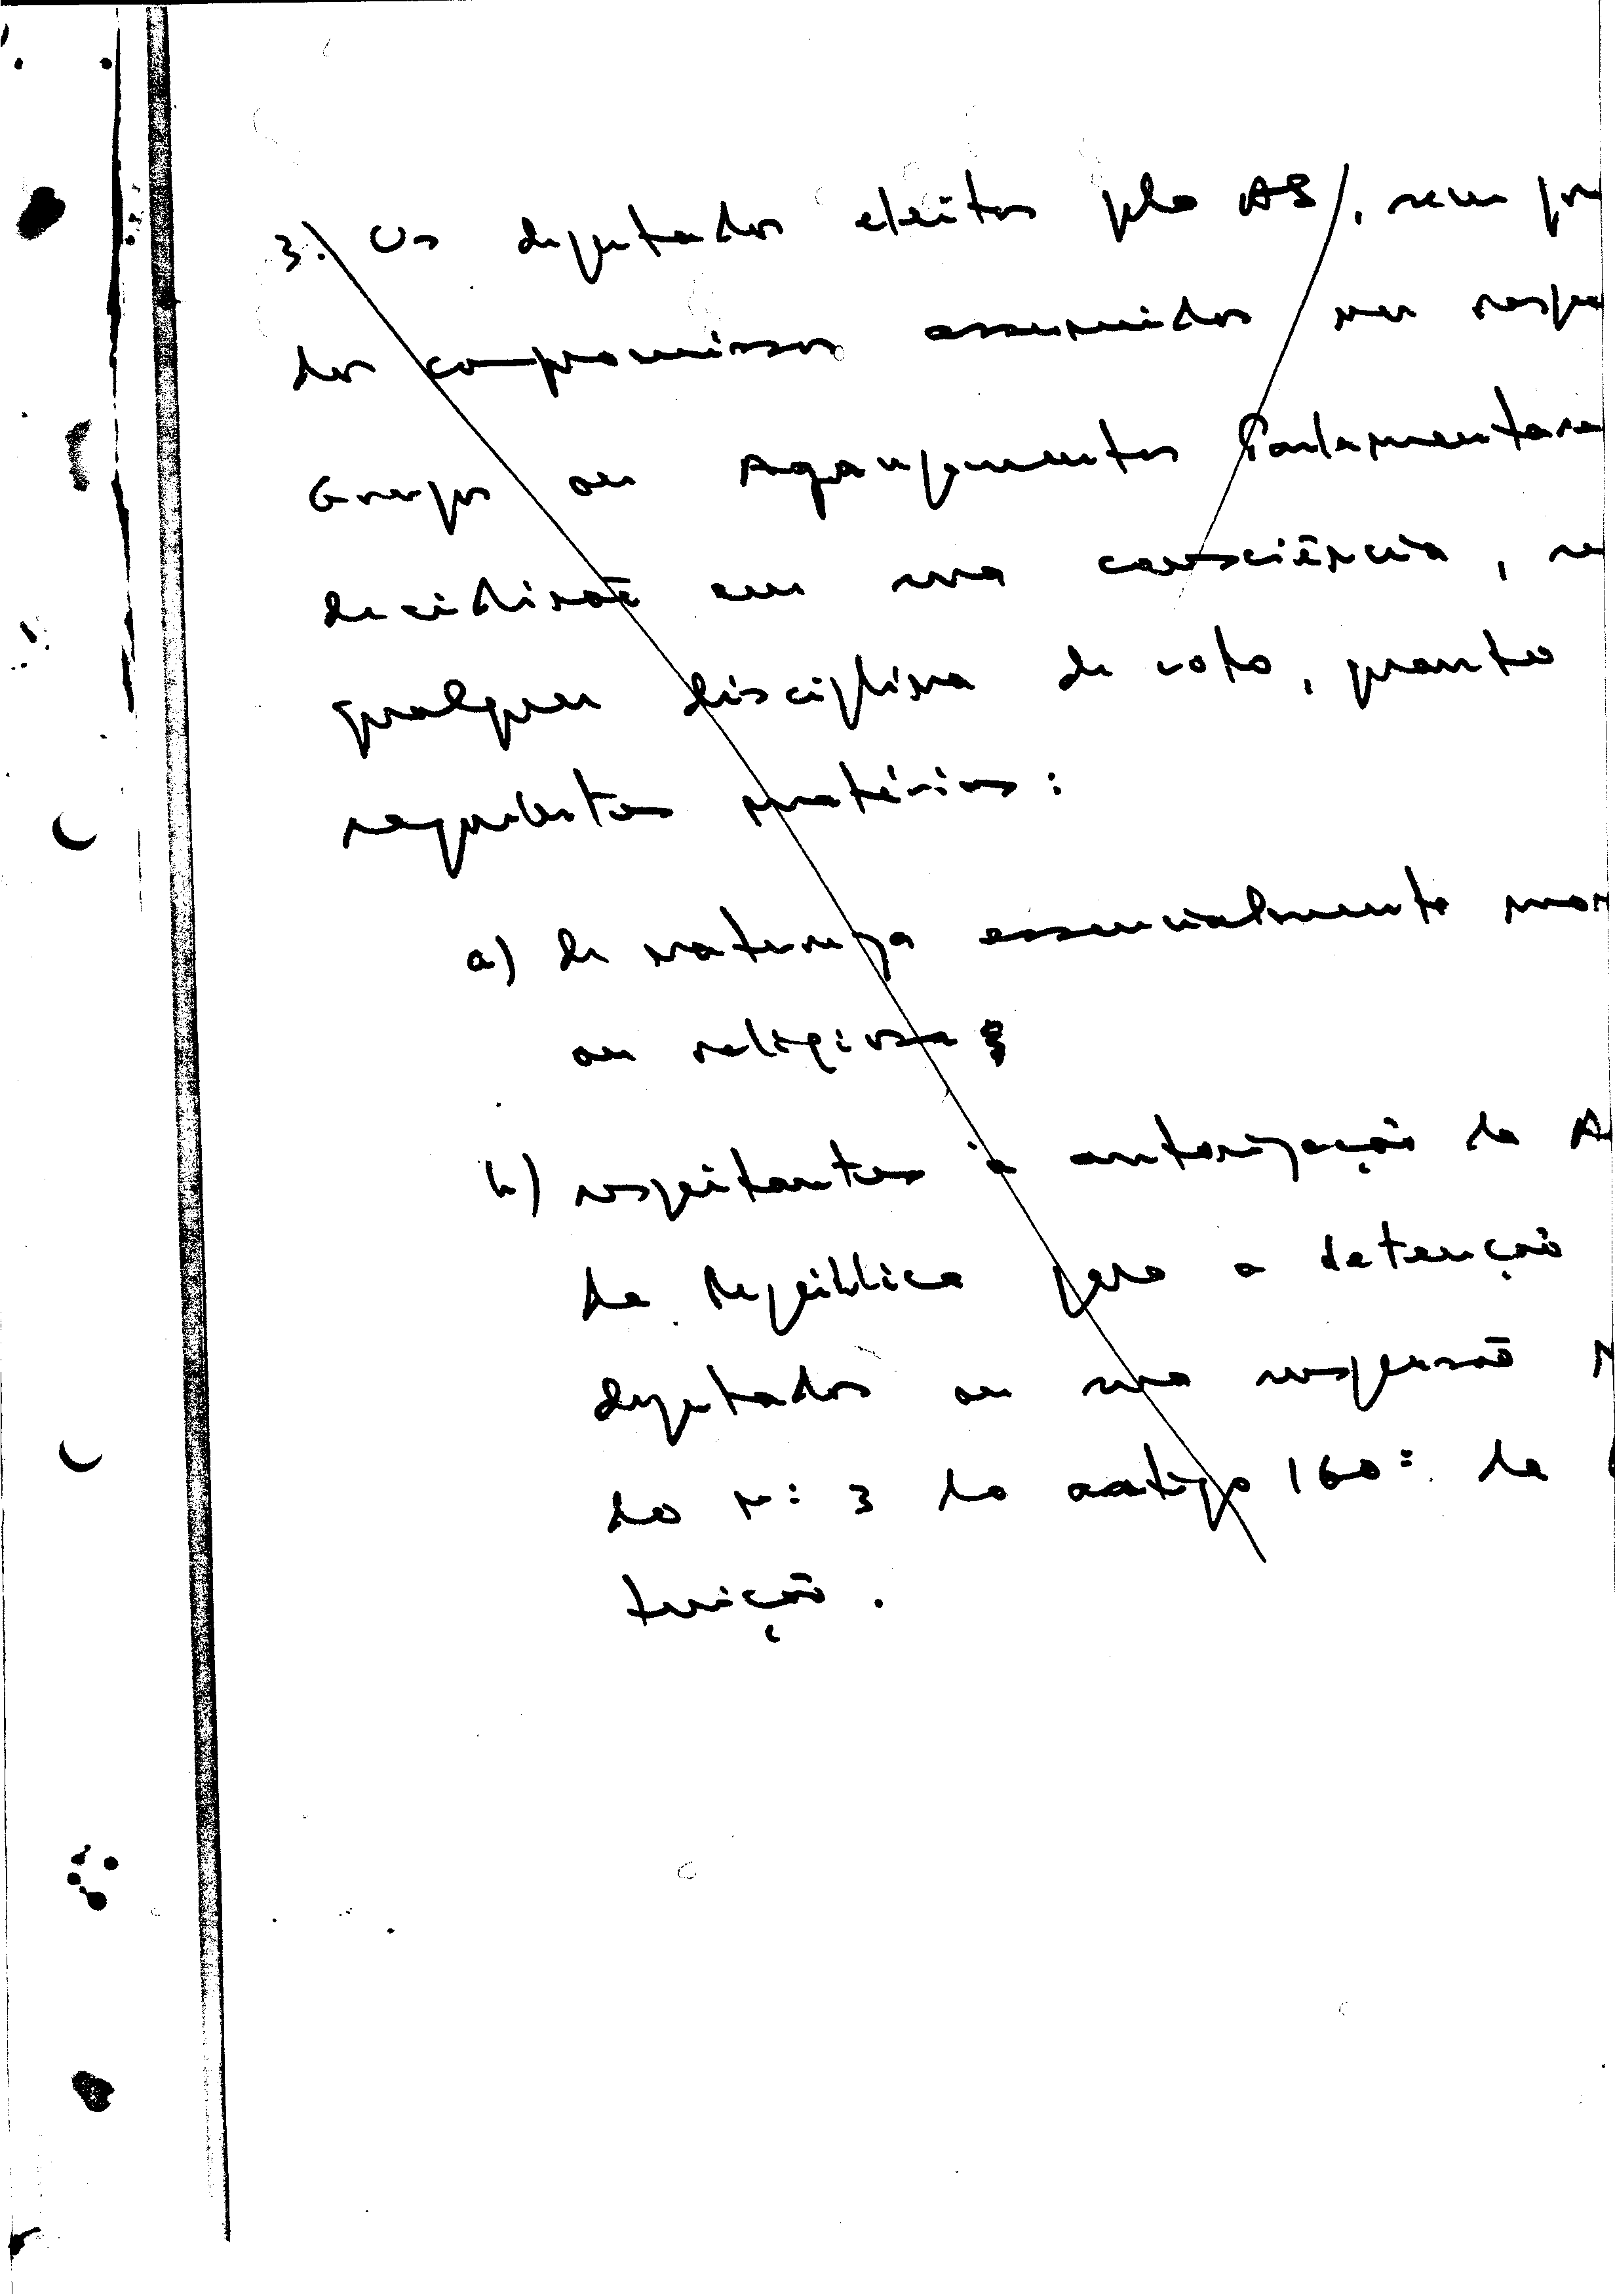 3. Os deputados eleitos pela AD, sem pre
dos compromissos assumidos nos respe
Grupos ou Agrupamentos Parlamentare
decidirão em sua consciência, se
qualquer disciplina de voto, quanto
seguintes matérias:
a) de natureza essencialmente mor
ou religiosa;
b) respeitantes à autorização da A
da República para a detenção
deputados ou sua suspensão n
do nº 3 do artigo 160º da
tuição.